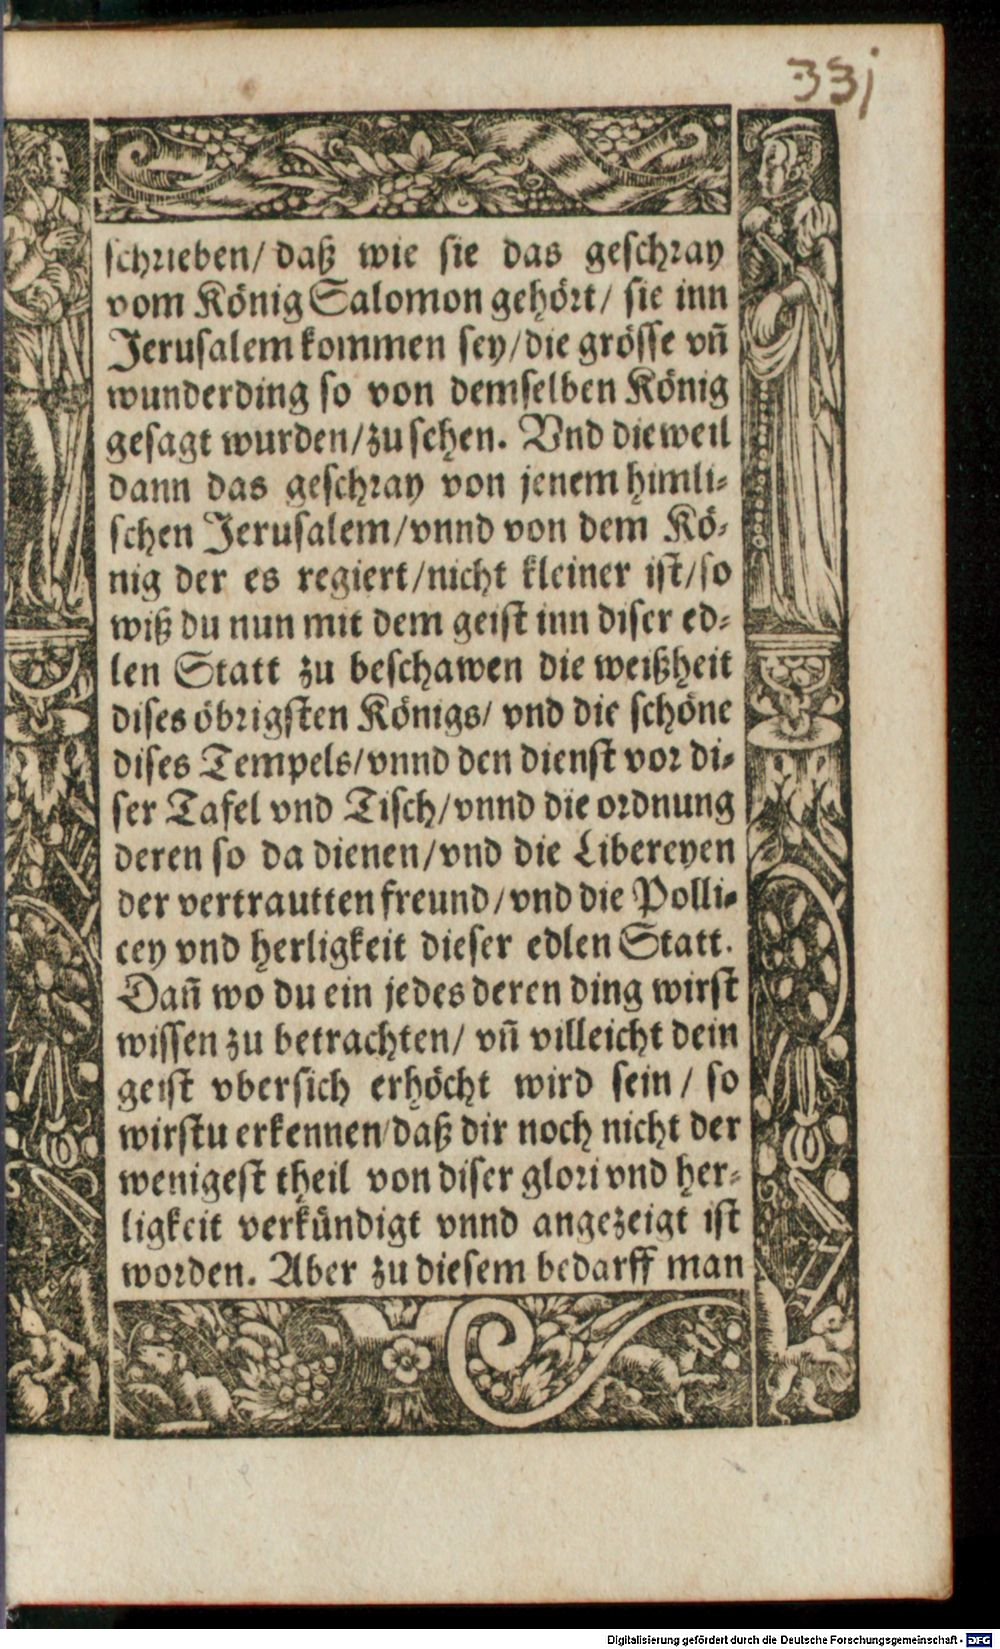 33j
schrieben/ daß wie sie das geschray
vom König Salomon gehört/ sie inn
Jerusalem kommen sey/die grösse vñ
wunderding so von demselben König
gesagt wurden/zu sehen. Vnd dieweil
dann das geschray von jenem himli-
schen Jerusalem/vnnd von dem Kö-
nig der es regiert/nicht kleiner ist/so
wiß du nun mit dem geist inn diser ed-
len Statt zu beschawen die weißheit
dises öbrigsten Königs/ vnd die schöne
dises Tempels/vnnd den dienst vor di-
ser Tafel vnd Tisch/vnnd die ordnung
deren so da dienen/vnd die Libereyen
der vertrautten freund/vnd die Polli-
cey vnd herligkeit dieser edlen Statt.
Dañ wo du ein jedes deren ding wirst
wissen zu betrachten/ vñ villeicht dein
geist vbersich erhöcht wird sein/ so
wirstu erkennen/daß dir noch nicht der
wenigest theil von diser glori vnd her-
ligkeit verkündigt vnnd angezeigt ist
worden. Aber zu diesem bedarff man
Digitalisierung gefördert durch die Deutsche Forschungsgemeinschaft - DFG